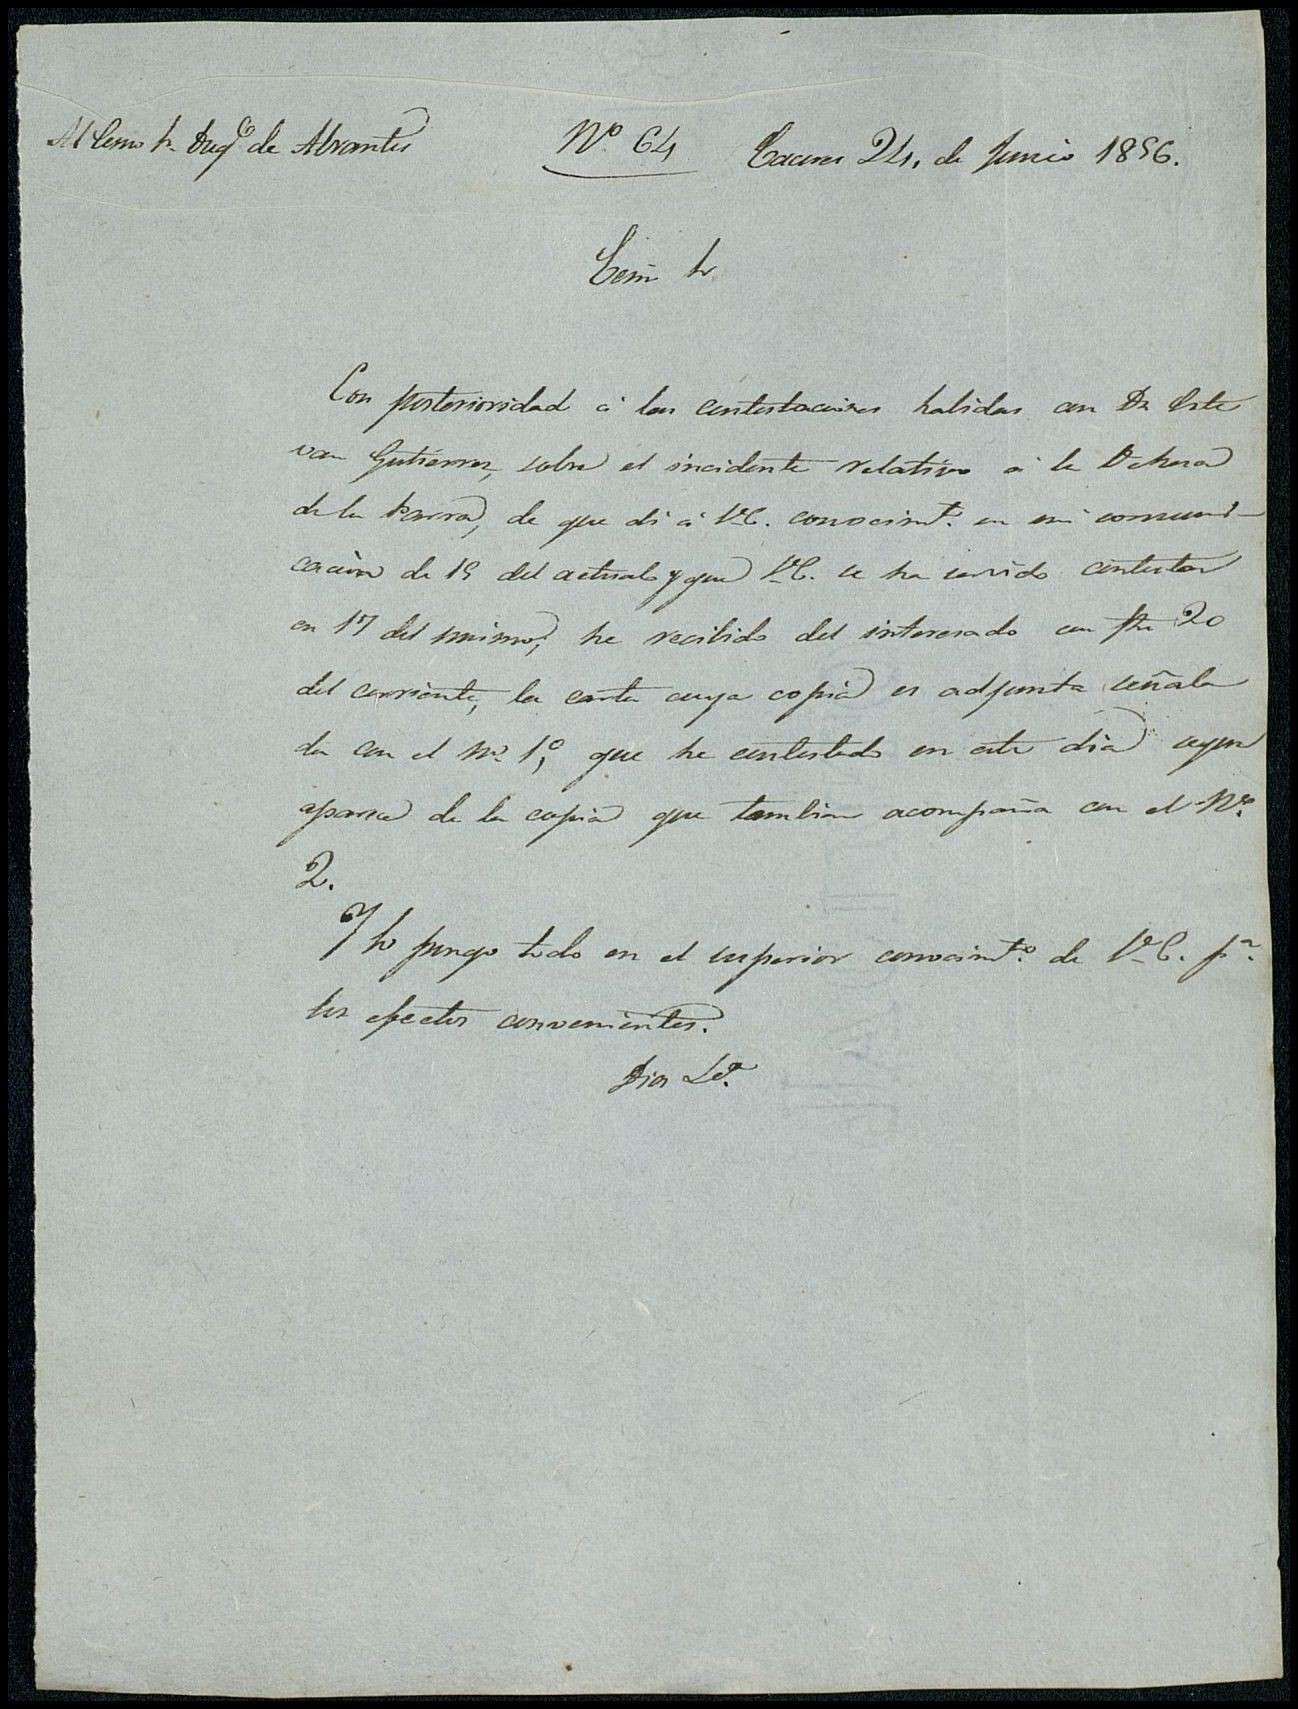 Al Excmo Sr. Duq.e de Abrantes
Nº 64
Caceres 24, de Junio 1856.
Excmo Sr
Con posterioridad á las contestaciones habidas con Dn Este
van Gutierrez, sobre el incidente relativo á la Dehesa
de la Parra, de que di á V.E. conocimt.º en mi comuni-
cación de 15 del actual y que V.E. se ha servido contestar
en 17 del mismo, he recibido del interesado con fha 20
del corriente, la carta cuya copia es adjunta señala
da con el nº 1º, que he contestado en este dia segun
aparece de la copia que tambien acompaña con el Nº
2.
Y lo pongo todo en el superior conocimt.º de V.E. p.ª
los efectos convenientes.
Dios &.ª